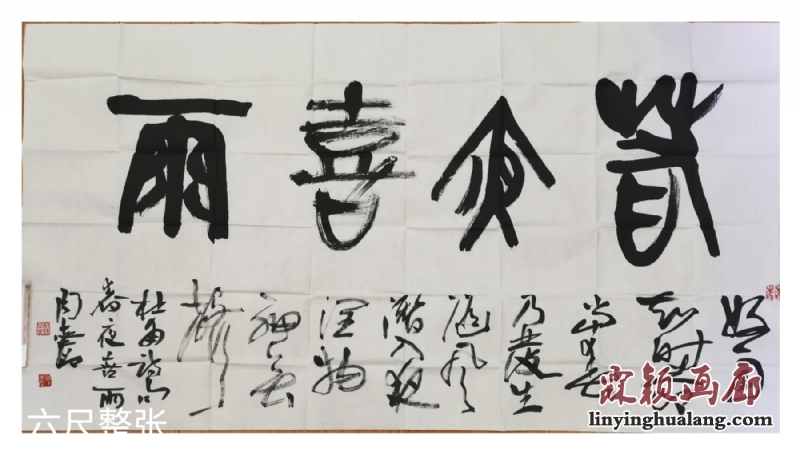 春夜喜雨
好雨
知时节
当春
乃發生
随风
潜入夜
润物
细无
聲
杜甫诗
春夜喜雨
周
六尺整张
霖颖画廊
linyinghualang.com